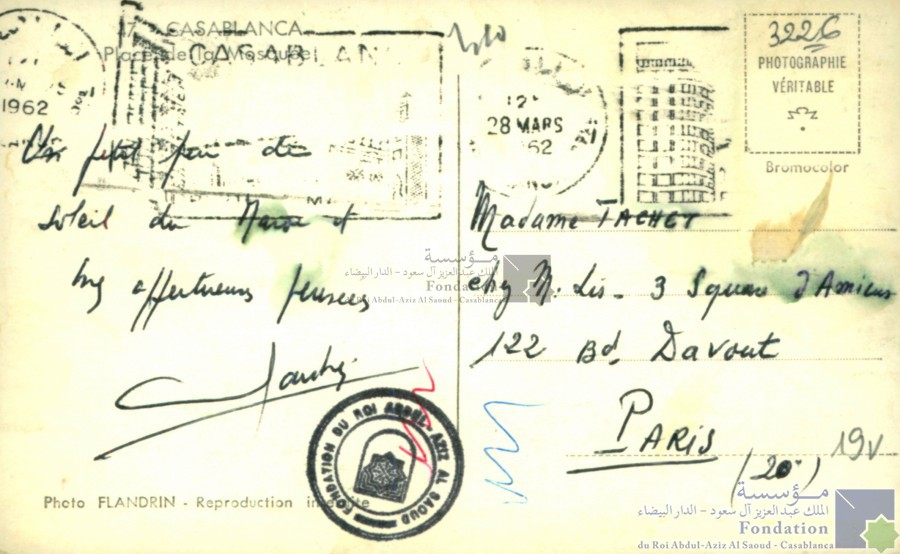 CASABLANCA
Place de la Mosquée
1962
28 MARS
3226
PHOTOGRAPHIE
VÉRITABLE
Bromocolor
Un petit peu du
soleil du Maroc et
affectueuses pensées
Madame TACHET
chez M. Lis - 3 Square d'Amiens
122 Bd. Davout
PARIS
(20e)
19v
Photo FLANDRIN - Reproduction interdite
FONDATION DU ROI ABDUL-AZIZ AL SAOUD
مؤسسة
الملك عبد العزيز آل سعود - الدار البيضاء
Fondation
du Roi Abdul-Aziz Al Saoud - Casablanca
مؤسسة
الملك عبد العزيز آل سعود - الدار البيضاء
Fondation
du Roi Abdul-Aziz Al Saoud - Casablanca